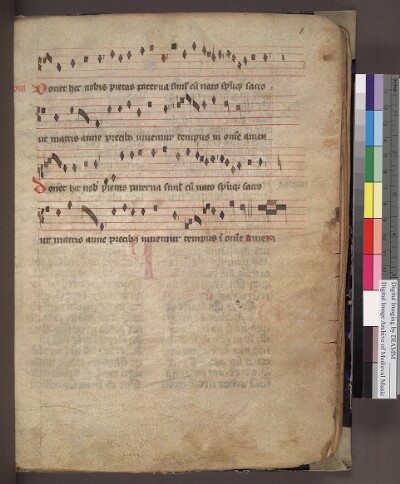 8
Donet hec nobis pietas paterna simul cū nato spūq; sacro
ut matris anne precibus iuvemur tempus in omne amen
Donet hec nob pietas paterna simul cū nato spūq; sacro
ut matris anne precibꝰ iuvemur tempus ī omne Amen
Digital Imaging by DIAMM
Digital Image Archive of Medieval Music